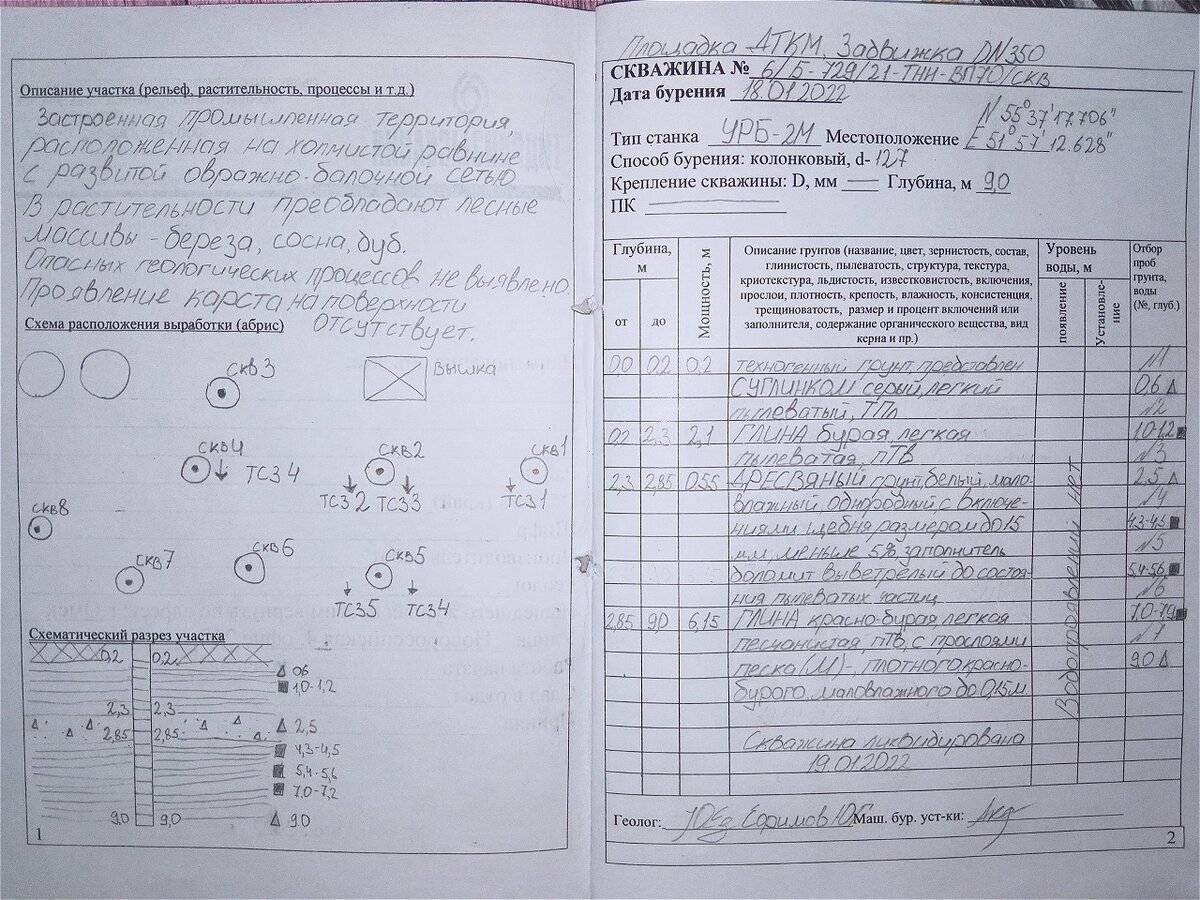 Описание участка (рельеф, растительность, процессы и т.д.)
Застроенная промышленная территория
расположенная на холмистой равнине
с развитой овражно-балочной сетью
В растительности преобладают лесные
массивы - береза, сосна, дуб.
Опасных геологических процессов не выявлено
Проявление карста на поверхности
отсутствует.
Схема расположения выработки (абрис)
скв3
Вышка
скв4
ТСЗ 4
скв2
ТСЗ 2 ТСЗ3
скв1
ТСЗ1
скв8
скв7
скв6
скв5
ТСЗ5 ТСЗ4
Схематический разрез участка
0,2 0,2
06
1,0-1,2
2,3 2,3
2,85 2,85
2,5
4,3-4,5
5,4-5,6
7,0-7,2
9,0 9,0 9,0
1
Площадка ДТКМ, Задвижка DN350
СКВАЖИНА № 6/Б-729/21-ТНН-ВП70/СКВ
Дата бурения 18.01.2022
N 55°37'17.706"
Тип станка УРБ-2М Местоположение E 51°57'12.628"
Способ бурения: колонковый, d-127
Крепление скважины: D, мм Глубина, м 9,0
ПК
Глубина, м
от
до
Мощность, м
Описание грунтов (название, цвет, зернистость, состав,
глинистость, пылеватость, структура, текстура,
криотекстура, льдистость, известковистость, включения,
прослои, плотность, крепость, влажность, консистенция,
трещиноватость, размер и процент включений или
заполнителя, содержание органического вещества, вид
керна и пр.)
Уровень воды, м
появление
Установле-ние
Отбор проб грунта, воды (№, глуб.)
0,0 0,2 0,2 техногенный грунт, представлен №1
СУГЛИНКОМ серый, легкий 0,6
пылеватый, ТПл №2
0,2 2,3 2,1 ГЛИНА бурая, легкая 1.0-1.2
пылеватая, пТв №3
2,3 2,85 0,55 ДРЕСВЯНЫЙ грунт, белый, мало- 2.5
влажный однородный, с включе- №4
ниями щебня размером до 15 4.3-4.5
мм, меньше 5%, заполнитель №5
доломит выветрелый до состоя- 5.4-5.6
ния пылеватых частиц №6
2,85 9,0 6,15 ГЛИНА красно-бурая легкая
песчанистая, пТв, с прослоями №7
песка (М)-, плотного красно- 9.0
бурого, маловлажного до 0,15м.
Водопроявлений нет
Скважина ликвидирована
19.01.2022
Геолог: Ефимов Маш. бур. уст-ки:
2